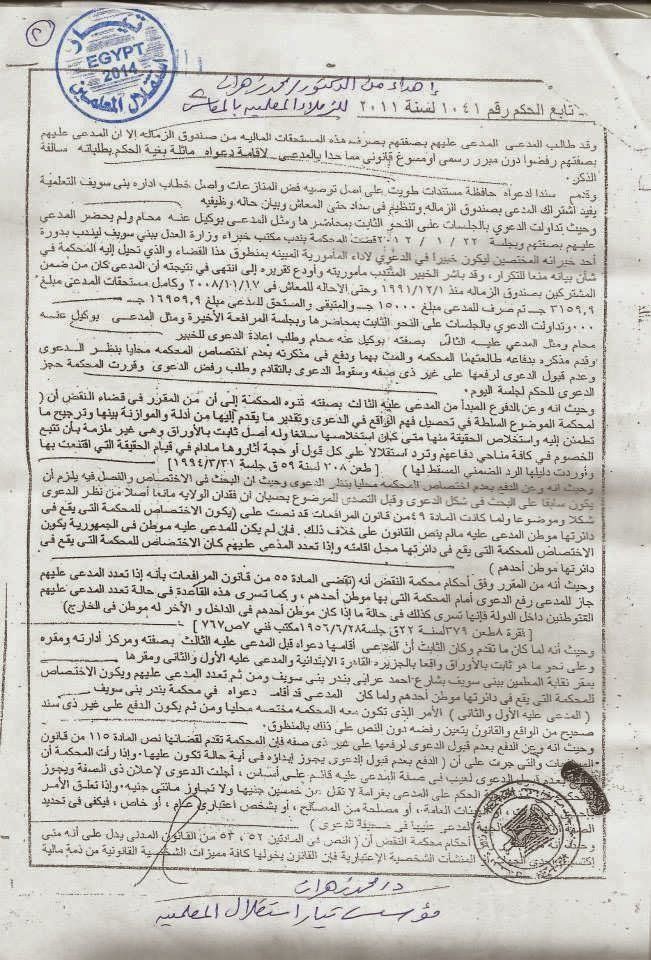 ٢
تيار
EGYPT
2014
استقلال المعلمين
إهداء من الدكتور/ محمد زهران
للزملاء المعلمين بالمعاش
تابع الحكم رقم ١٠٤١ لسنة ٢٠١١
وقد طالب المدعى المدعى عليهم بصفتهم بصرف هذه المستحقات الماليه من صندوق الزماله إلا ان المدعى عليهم
بصفتهم رفضوا دون مبرر رسمى او مسوغ قانونى مما حدا بالمدعى لاقامة دعواه ماثلة بغية الحكم بطلباته سالفة
الذكر.
وقدم سندا لدعواه حافظة مستندات طويت على اصل توصيه فض المنازعات واصل خطاب اداره بنى سويف التعلمية
يفيد اشتراك المدعى بصندوق الزماله وتنظيم فى سداد حتى المعاش وبيان حاله وظيفيه
وحيث تداولت الدعوي بالجلسات على النحو الثابت بمحاضرها ومثل المدعى بوكيل عنه محام ولم يحضر المدعى
عليهم بصفتهم وبجلسة ٢٢ / ١ / ٢٠١٢ قضت المحكمة بندب مكتب خبراء وزارة العدل ببني سويف ليندب بدورة
أحد خبرائه المختصين ليكون خبيرا في الدعوي لاداء المأمورية المبينه بمنطوق هذا القضاء والذي تحيل إليه المحكمة في
شأن بيانه منعا للتكرار، وقد باشر الخبير المنتدب مأموريته وأودع تقريره إلى انتهى في نتيجته أن المدعى كان من ضمن
المشتركين بصندوق الزماله منذ ١٩٩١/١٢/١ وحتى الاحاله للمعاش فى ٢٠٠٨/١٠/١٧ وكامل مستحقات المدعى مبلغ
٣١٥٩,٩ جـ تم صرف للمدعى مبلغ ١٥٠٠٠ جـ والمتبقى والمستحق للمدعى مبلغ ١٦٩٥٩,٩ جـ
٠٠٠ وتداولت الدعوي بالجلسات على النحو الثابت بمحاضرها وبجلسة المرافعة الأخيرة ومثل المدعى بوكيل عنه
محام ومثل المدعي عليه الثالث بصفته بوكيل عنه محام وطلب اعادة الدعوى للخبير
وقدم مذكره بدفاعه طالعتها المحكمه والمت بها ودفع فى مذكرته بعدم اختصاص المحكمه محليا بنظر الدعوى
وعدم قبول الدعوى لرفعها على غير ذى صفه وسقوط الدعوى بالتقادم وطلب رفض الدعوى وقررت المحكمة حجز
الدعوى للحكم لجلسة اليوم.
وحيث انه وعن الدفوع المبدأ من المدعى عليه الثالث بصفته تنوه المحكمة إلى أن من المقرر في قضاء النقض أن (
لمحكمة الموضوع السلطة في تحصيل فهم الواقع في الدعوى وتقدير ما يقدم إليها من أدلة والموازنة بينها وترجيح ما
تطمئن إليه واستخلاص الحقيقة منها متى كان استخلاصها سائغا وله أصل ثابت بالأوراق وهي غير ملزمة بأن تتبع
الخصوم في كافة مناحي دفاعهم وترد استقلالا على كل قول أو حجة أثاروها مادام في قيام الحقيقة التي اقتنعت بها
وأوردت دليلها الرد الضمني المسقط لها ) [ طعن ٢٠٨ لسنة ٥٩ ق جلسة ١٩٩٤/٣/٣١ ]
وحيث انه وعن الدفع بعدم اختصاص المحكمه محليا بنظر الدعوى وحيث ان البحث فى الاختصاص والفصل فيه يلزم أن
يكون سابقا على البحث في شكل الدعوى وقبل التصدى للموضوع بحسبان ان فقدان الولايه مانعا أصلا من نظر الدعوى
شكلا وموضوعا ولما كانت المادة ٤٩ من قانون المرافعات قد نصت على (يكون الاختصاص للمحكمة التي يقع في
دائرتها موطن المدعى عليه مالم ينص القانون على خلاف ذلك. فإن لم يكن للمدعى عليه موطن في الجمهورية يكون
الاختصاص للمحكمة التي يقع في دائرتها محل اقامته وإذا تعدد المدعى عليهم كان الاختصاص للمحكمة التي يقع في
دائرتها موطن أحدهم )
وحيث انه من المقرر وفق أحكام محكمة النقض أنه (تقضى المادة ٥٥ من قانون المرافعات بأنه إذا تعدد المدعى عليهم
جاز للمدعى رفع الدعوى أمام المحكمة التى بها موطن أحدهم ، وكما تسرى هذه القاعدة فى حالة تعدد المدعى عليهم
القنوطنين داخل الدولة فإنها تسرى كذلك فى حالة ما إذا كان موطن أحدهم فى الداخل و الآخر له موطن فى الخارج)
[ نقرة ٨ طعن ٣٧٩ لسنة ٢٢ ق جلسة ١٩٥٦/٦/٢٨ مكتب فني ٧ ص ٧٦٧ ]
وحيث أنه لما كان ما تقدم وكان الثابت أن المدعى أقامها دعواه قبل المدعى عليه الثالث بصفته ومركز أدارته ومقره
وعلى نحو ما هو ثابت بالأوراق واقعا بالجزيره القادرة الابتدائية والمدعى عليه الأول والثانى ومقرها
بمقر نقابة المعلمين ببنى سويف بشارع احمد عرابى بندر بنى سويف ومن ثم تعدد المدعى عليهم ويكون الاختصاص
للمحكمة التي يقع فى دائرتها موطن أحدهم ولما كان المدعى قد أقامه دعواه في محكمة بندر بنى سويف
( المدعى عليه الأول والثانى ) الأمر الذى تكون معه المحكمه مختصه محليا ومن ثم يكون الدفع على غير ذى سند
صحيح من الواقع والقانون يتعين رفضه دون النص على ذلك بالمنطوق.
وحيث انه وعن الدفع بعدم قبول الدعوى لرفعها على غير ذى صفه فإن المحكمة تقدم لقضائها نص المادة ١١٥ من قانون
والتي جرت على أن ( الدفع بعدم قبول الدعوى يجوز إبداؤه في أية حالة تكون عليها. وإذا رأت المحكمة أن
بعدم قبول الدعوى لعيب في صفة المدعى عليه قائم على أساس ، أجلت الدعوى لإعلان ذى الصفة ويجوز
الحكم على المدعى بغرامة لا تقل عن خمسين جنيها ولا تجاوز مائتى جنيه. وإذا تعلق الأمر
العامة، أو مصلحة من المصالح ، أو بشخص اعتبارى عام ، أو خاص ، فيكفى فى تحديد
المدعى عليها فى صحيفة الدعوى )
أحكام محكمة النقض أن ( النص فى المادتين ٥٢ ، ٥٣ من القانون المدنى يدل على أنه متى
المنشآت الشخصية الإعتبارية فإن القانون يخولها كافة مميزات الشخصية القانونية من ذمة مالية
د/ محمد زهران
مؤسس تيار استقلال المعلمين